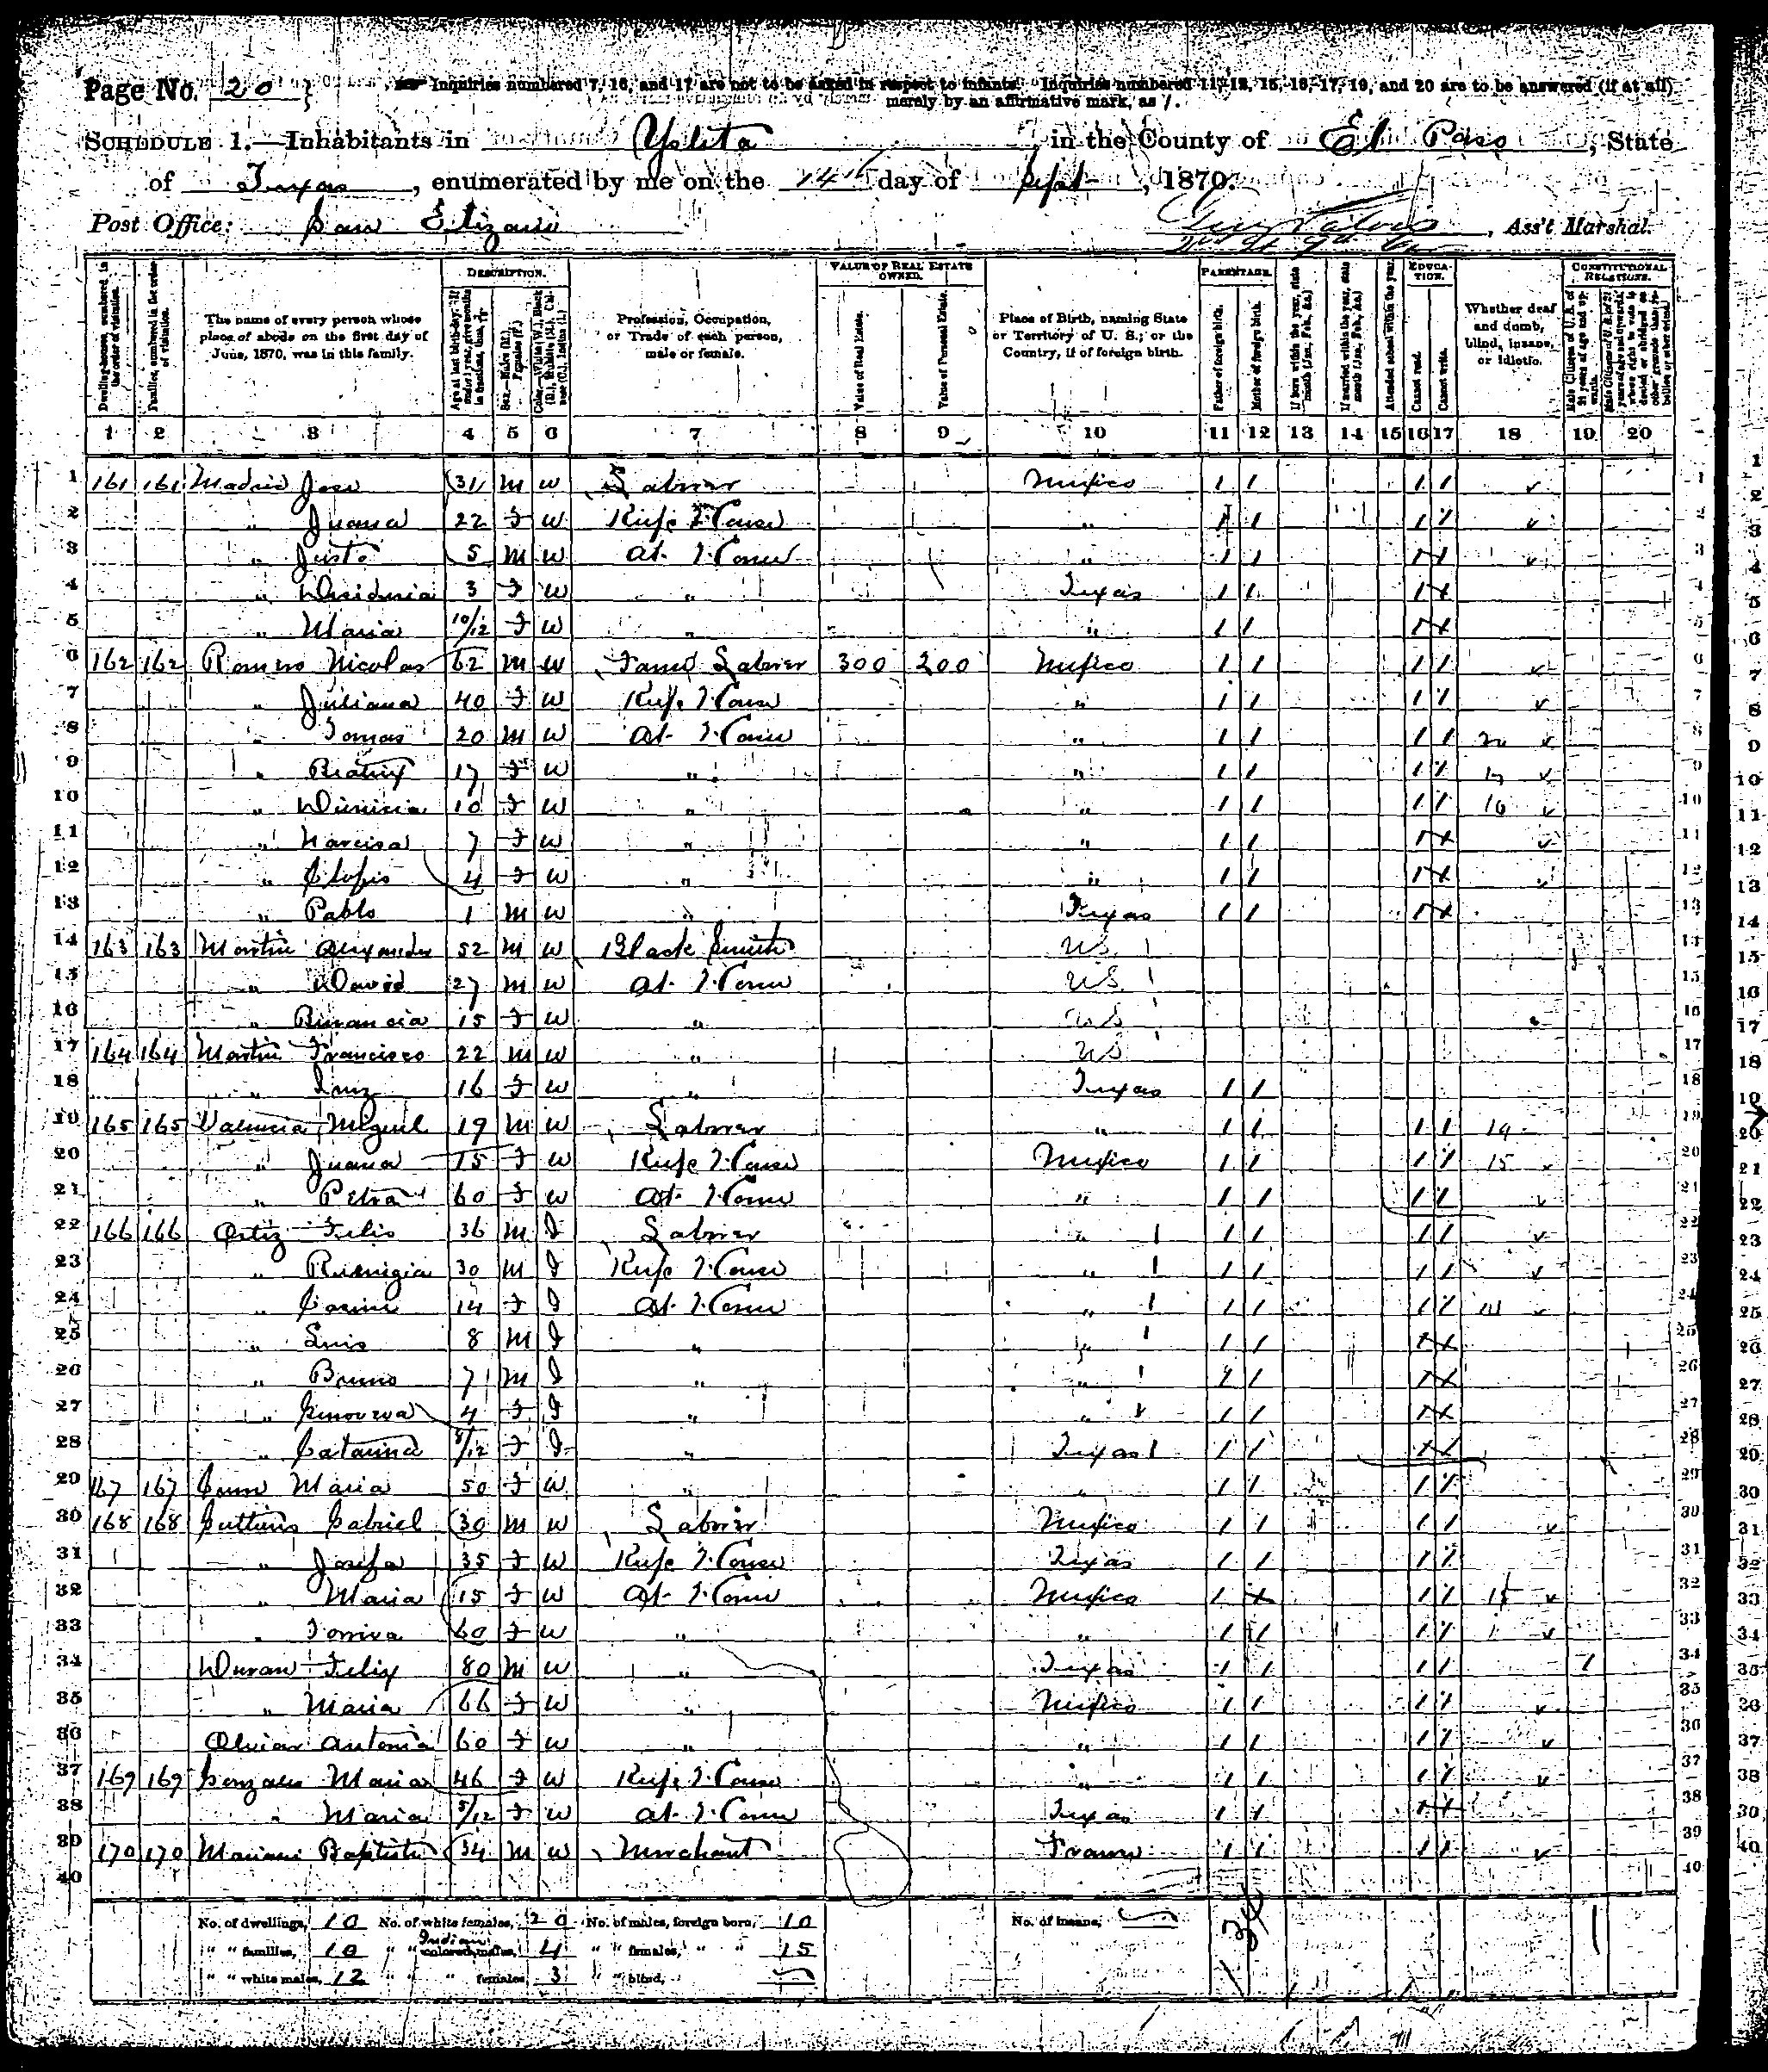 Page No. 20
Inquiries numbered 7, 16, and 17 are not to be asked in respect to infants. Inquiries numbered 11, 12, 15, 16, 17, 19, and 20 are to be answered (if at all)
merely by an affirmative mark, as /.
SCHEDULE 1.—Inhabitants in Ysleta, in the County of El Paso, State
of Texas, enumerated by me on the 14th day of Sept, 1870.
Post Office: San Elizario
, Ass't Marshal.
DESCRIPTION. VALUE OF REAL ESTATE OWNED. PARENTAGE. EDUCATION. CONSTITUTIONAL RELATIONS.
Dwelling-houses, numbered in the order of visitation.
Families, numbered in the order of visitation.
The name of every person whose place of abode on the first day of June, 1870, was in this family.
Age at last birth-day. If under 1 year, give months in fractions, thus, 3/12.
Sex.—Males (M.), Females (F.)
Color.—White (W.), Black (B.), Mulatto (M.), Chinese (C.), Indian (I.)
Profession, Occupation, or Trade of each person, male or female.
Value of Real Estate.
Value of Personal Estate.
Place of Birth, naming State or Territory of U. S.; or the Country, if of foreign birth.
Father of foreign birth.
Mother of foreign birth.
If born within the year, state month (Jan., Feb., &c.)
If married within the year, state month (Jan., Feb., &c.)
Attended school within the year.
Cannot read.
Cannot write.
Whether deaf and dumb, blind, insane, or idiotic.
Male Citizens of U. S. of 21 years of age and upwards.
Male Citizens of U. S. of 21 years of age and upwards, whose right to vote is denied or abridged on other grounds than rebellion or other crime.
1 2 3 4 5 6 7 8 9 10 11 12 13 14 15 16 17 18 19 20
1 161 161 Madrid Jose 31 M W Laborer Mexico / / / /
2 " Juana 22 F W Keeps House " / / / /
3 " Justo 5 M W At Home " / / /
4 " Desideria 3 F W " Texas / / /
5 " Maria 10/12 F W " " / / /
6 162 162 Romero Nicolas 62 M W Farm Laborer 300 200 Mexico / / / /
7 " Juliana 40 F W Keeps House " / / / /
8 " Tomas 20 M W At Home " / / / / 20
9 " Beatrix 17 F W " " / / / / 17
10 " 10 F W " " / / / / 10
11 " Narcisa 7 F W " " / / /
12 " 4 F W " " / / /
13 " Pablo 1 M W " Texas / / /
14 163 163 Martin Alexander 52 M W Black Smith U.S.
15 " David 27 M W At Home U.S.
16 " 15 F W " U.S.
17 164 164 Martin Francisco 22 M W " U.S.
18 " Luz 16 F W " Texas / /
19 165 165 Valencia Miguel 19 M W Laborer " / / / / 19
20 " Juana 15 F W Keeps House Mexico / / / / 15
21 " Petra 60 F W At Home " / / / /
22 166 166 Ortiz Felis 36 M I Laborer " / / / /
23 " Remigia 30 M I Keeps House " / / / /
24 " 14 F I At Home " / / / / 14
25 " Luis 8 M I " " / / /
26 " Bruno 7 M I " " / / /
27 " Genoveva 4 F I " " / / /
28 " Catarina 8/12 F I " Texas / /
29 167 167 Maria 50 F W " " / / / /
30 168 168 Gabriel 30 M W Laborer Mexico / / / /
31 " Josefa 35 F W Keeps House Texas / / / /
32 " Maria 15 F W At Home Mexico / / / 15
33 " 60 F W " " / / / /
34 Duran Felix 80 M W " Texas / / / / /
35 " Maria 66 F W " Mexico / / / /
36 Antonia 60 F W " " / / / /
37 169 169 Gonzales Maria 46 F W Keeps House " / / / /
38 " Maria 5/12 F W At Home Texas / /
39 170 170 Mariani Baptiste 34 M W Merchant France / / / /
40
No. of dwellings, 10 No. of white females, 20 No. of males, foreign born, 10 No. of insane,
" " families, 10 " " Indian colored males, 4 " " females, " " 15
" " white males, 12 " " " females, 3 " " blind,